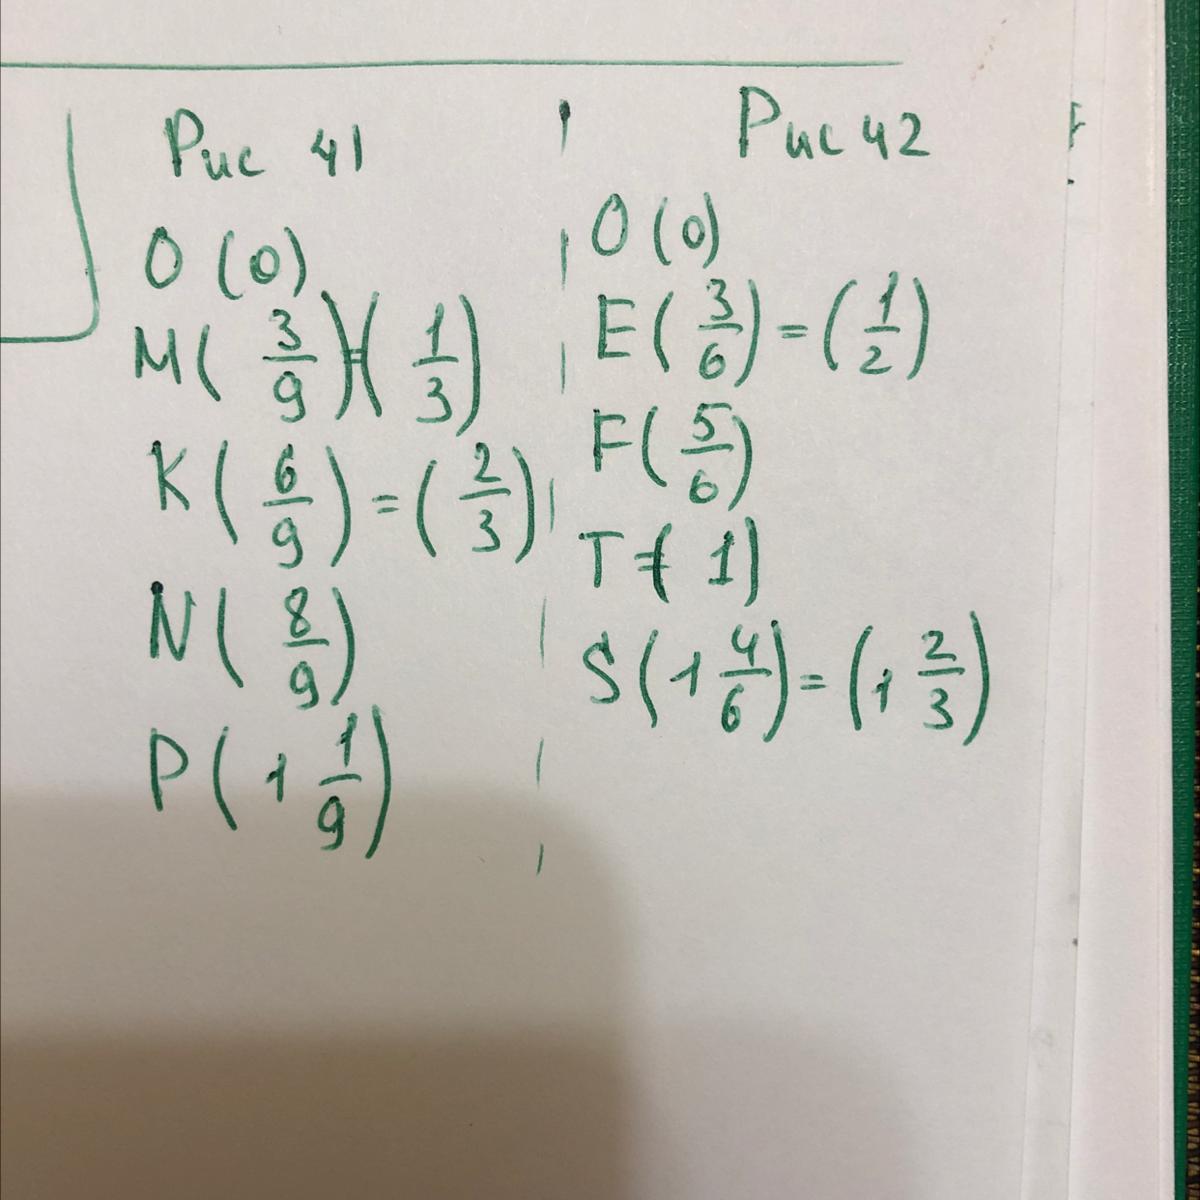 Рис 41
O (0)
M( 3/9 )=( 1/3 )
K( 6/9 ) = ( 2/3 )
N( 8/9 )
P( 1 1/9 )
Рис 42
O (0)
E( 3/6 ) = ( 1/2 )
F( 5/6 )
T=( 1)
S( 1 4/6 ) = ( 1 2/3 )